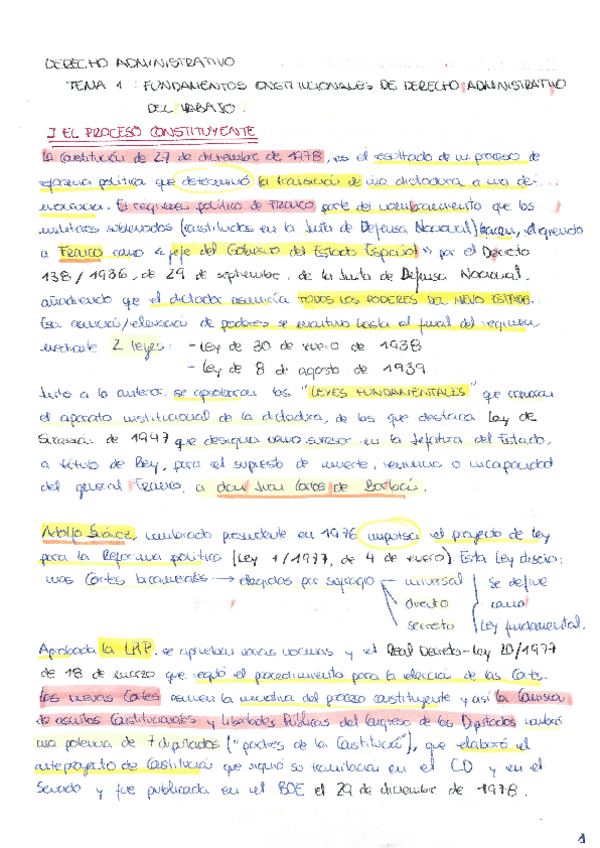 DERECHO ADMINISTRATIVO
TEMA 1 : FUNDAMENTOS CONSTITUCIONALES DE DERECHO ADMINISTRATIVO
DEL TRABAJO.
I EL PROCESO CONSTITUYENTE
La Constitución de 27 de diciembre de 1978, es el resultado de un proceso de
reforma política que determinó la transición de una dictadura a una de-
mocracia. El régimen político de Franco parte del nombramiento que los
militares sublevados (constituidos en la Junta de Defensa Nacional) hacen, eligiendo
a Franco como "jefe del Gobierno del Estado Español" por el Decreto
138/1936, de 29 de septiembre, de la Junta de Defensa Nacional,
añadiendo que el dictador asumiría TODOS LOS PODERES DEL NUEVO ESTADO.
Esa asunción/elevación de poderes se mantuvo hasta el final del régimen,
mediante 2 leyes: - Ley de 30 de enero de 1938
- Ley de 8 de agosto de 1939
Junto a lo anterior, se aprobaron las "LEYES FUNDAMENTALES" que
el aparato institucional de la dictadura, de las que destaca Ley de
Sucesión de 1947 que designa como sucesor en la Jefatura del Estado,
a título de Rey, para el supuesto de muerte, renuncia o incapacidad
del general Franco, a don Juan Carlos de Borbón.
Adolfo Suárez, nombrado presidente en 1976 impulsa el proyecto de Ley
para la Reforma política (Ley 1/1977, de 4 de enero) Esta Ley diseña:
unas Cortes bicamerales → elegidas por sufragio universal se define
directo como
secreto Ley fundamental.
Aprobada la LRP, se aprueban varias normas y el Real Decreto-Ley 20/1977
de 18 de marzo que reguló el procedimiento para la elección de las Cortes.
Las nuevas Cortes asumen la iniciativa del proceso constituyente y así la Comisión
de asuntos Constitucionales y Libertades Públicas del Congreso de los Diputados nombró
una ponencia de 7 diputados ("padres de la Constitución"), que elaboró el
anteproyecto de Constitución que siguió su tramitación en el CD y en el
Senado y fue publicada en el BOE el 29 de diciembre de 1978.
1